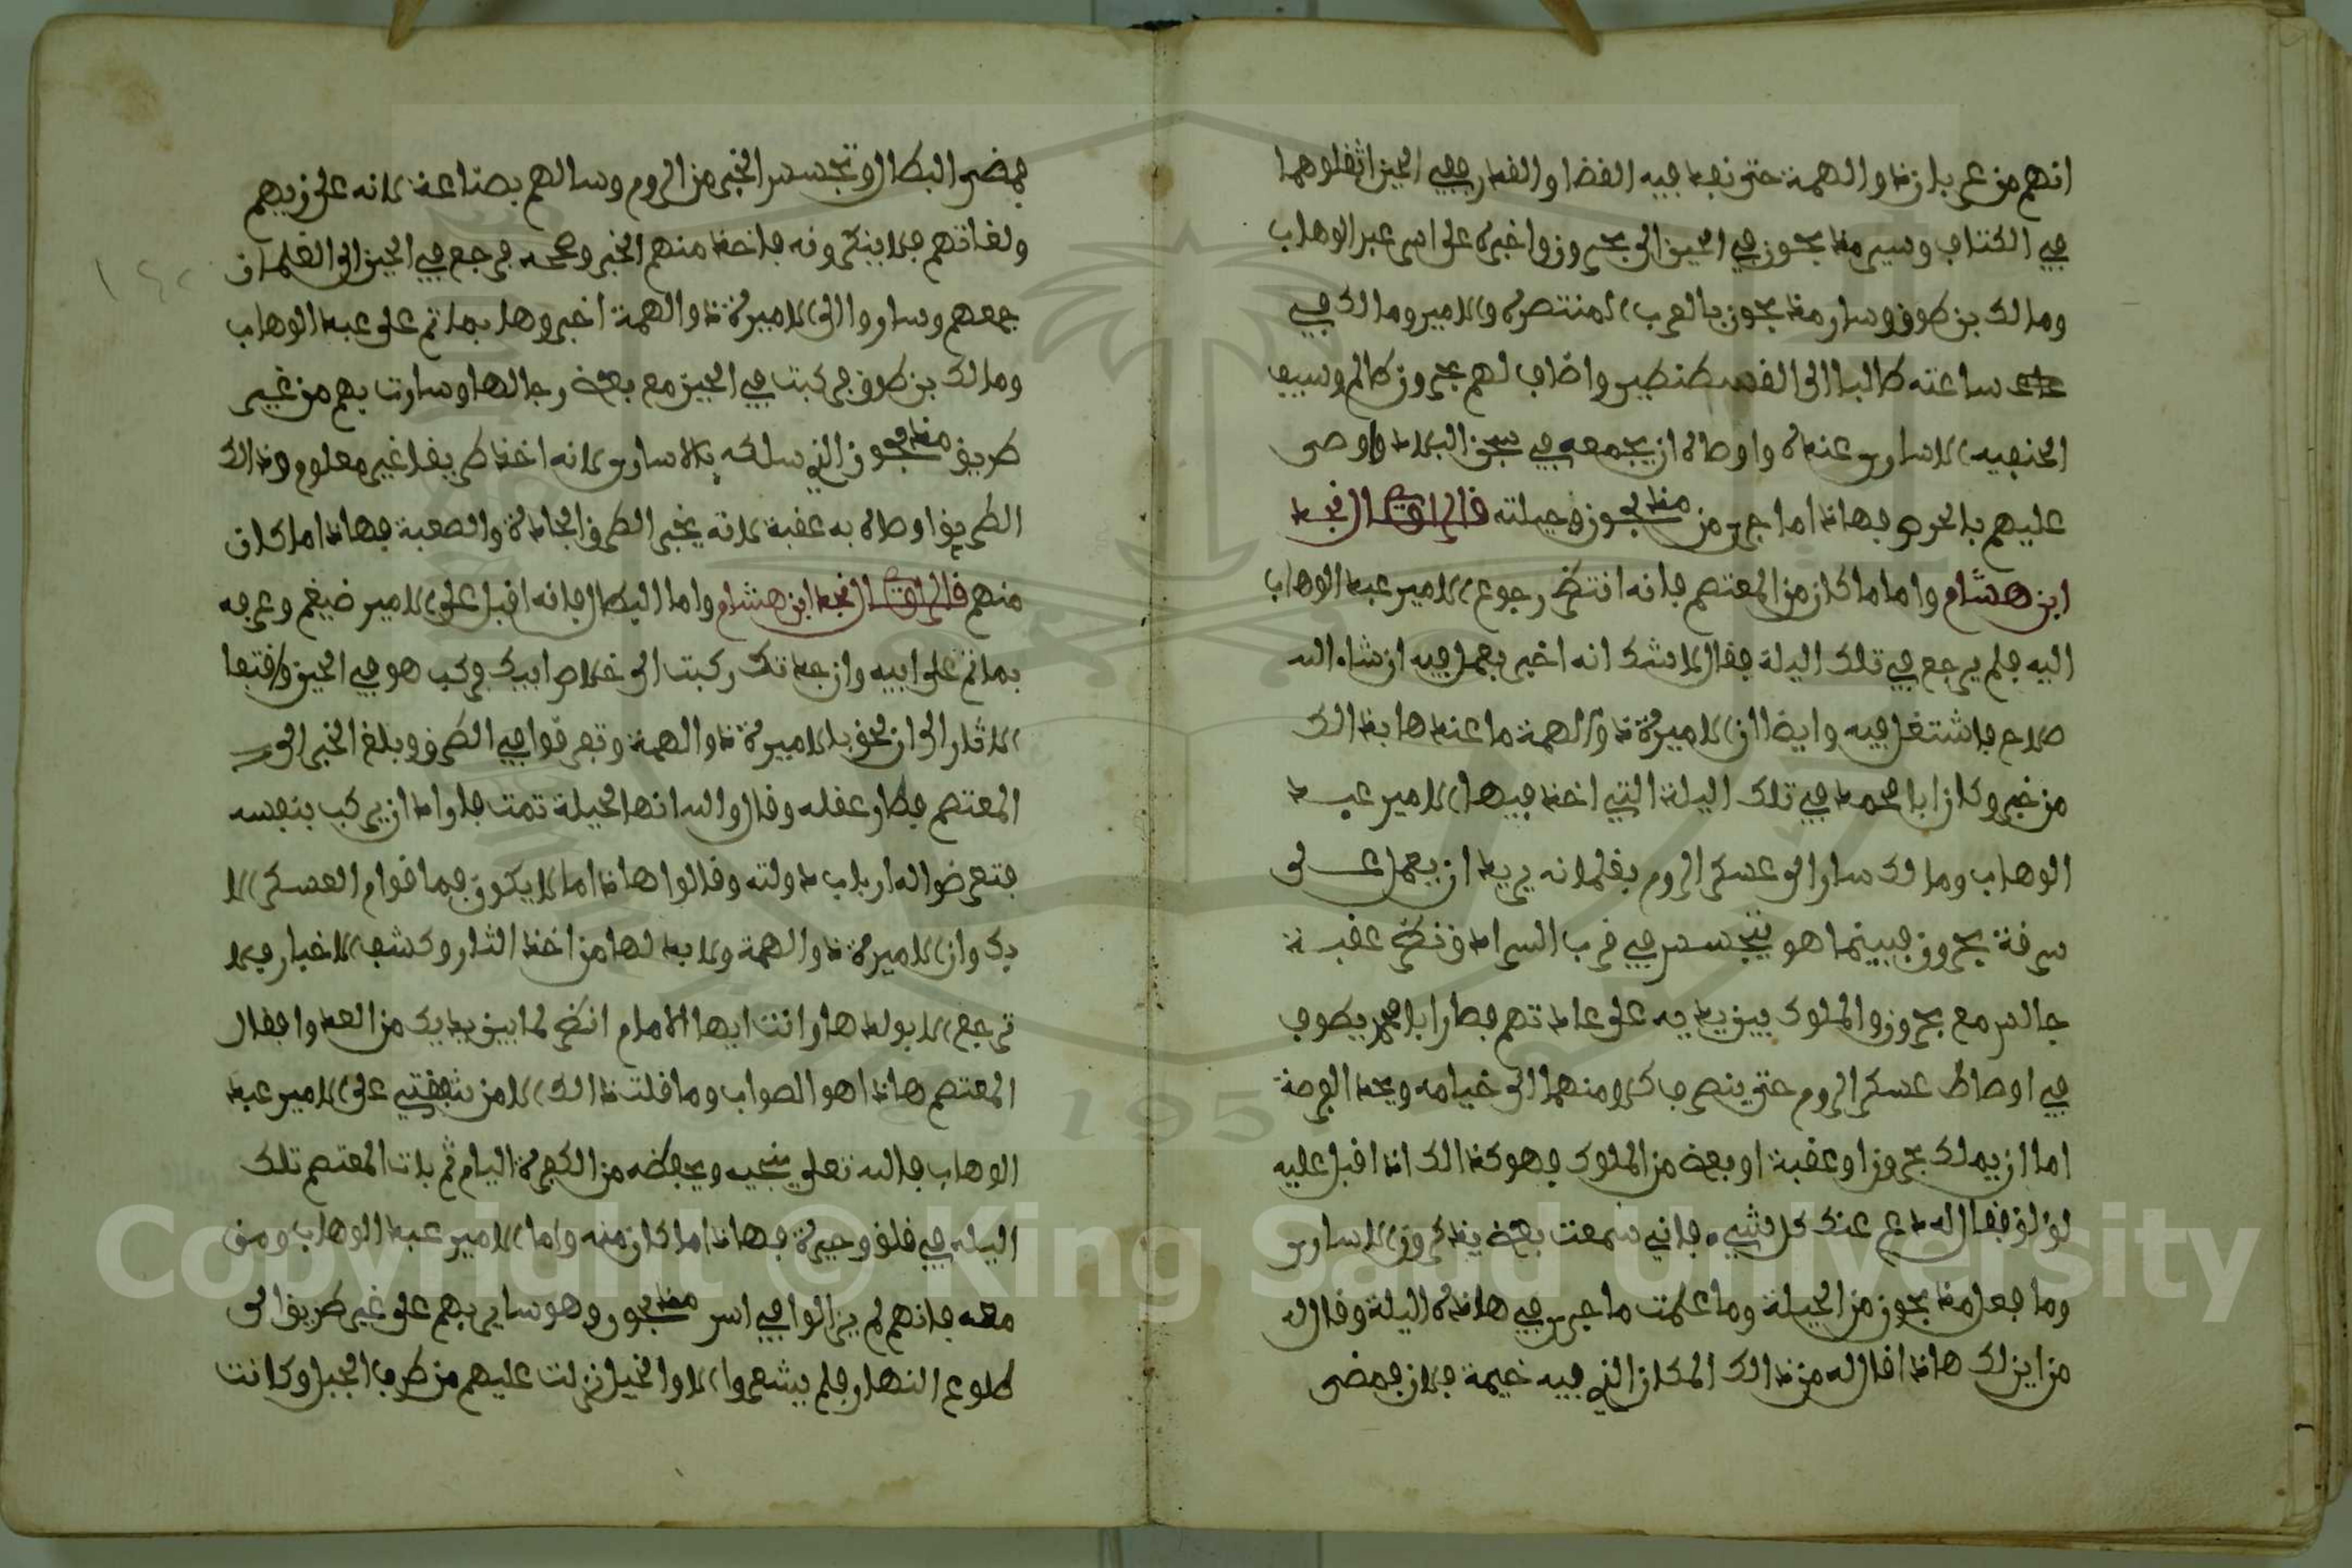 انهم من عرب بلاد ذو الهمة حتى نفد فيه القضا والقدر ففي الحين اثقلوهما
في الكتاف وسير منذ بحون في الحين الى بحرون واخبره على اسر عبد الوهاب
ومالك بن طوق وسار منذ بحون بالعرب المنتصرة والامير ومالك في
ساعته طالبا الى القسطنطين واضاف لهم بحرون ظالم وسيف
الحنفيه الاسارى عنده واوصاه ان يجمعه في سجن البلاد واوصى
عليهم بالحرص فهاذا ما جرى من منذ بحون وحيلته قال الراوي نجد
ابن هشام واما ما كان من المعتصم فانه انتظر رجوع الامير عبد الوهاب
اليه فلم يرجع في تلك اليلة فقال لا شك انه اخبر بعمل فيه ان شاء الله
صلاح فاشتغل فيه وايضا ان الاميرة ذو الهمة ما عندها بذالك
من خبر وكان ابا محمد في تلك اليلة التي اخذ فيها الامير عبد
الوهاب ومالك سار الى عسكر الروم بغلمانه يريد ان يعمل على
سرقة بحرون فبينما هو يتجسس في قرب السرادق نظر عقبة
جالس مع بحرون والملوك بين يديه على عادتهم فصار ابا محمد يطوف
في اوصاط عسكر الروم حتى ينصرف كل منهما الى خيامه ويجد الفرصة
اما ان يملك بحرون او عقبة او بعض من الملوك فهو كذالك اذ اقبل عليه
لؤلؤ فقال له دع عنك كل شيء فاني سمعت بعض يذكرون الاسارى
وما فعل منذ بحون من الحيلة وما علمت ما جرى في هاذه اليلة وقال له
من اين لك هاذا قال له من ذالك المكان الذي فيه خيمة فلان فمضى
فمضى البطال وتجسس الخبر من الروم وسالهم بصناعة لانه على زيهم
ولغاتهم فلا ينكرونه فاخذ منهم الخبر وصححه فرجع في الحين الى الغلمان
جمعهم وساروا الى الاميرة ذو الهمة اخبروها بما تم على عبد الوهاب
ومالك بن طوق فركبت في الحين مع بعض رجالها وسارت بهم من غير
طريق منذ بحون الذي سلكه بالاسارى لانه اخذ طريقا غير معلوم وذالك
الطريق اوصاه به عقبة لانه يخبر الطرق الجادة والصعبة فهاذا ما كان
منهم قال الراوي نجد ابن هشام واما البطال فانه اقبل على الامير ضيغم وعرفه
بما تم على ابيه وان جدتك ركبت الى خلاص ابيك فركب هو في الحين واقتفا
الاثار الى ان لحق بالاميرة ذو الهمة وتفرقوا في الطرق وبلغ الخبر الى
المعتصم فطار عقله وقال والله انها لحيلة تمت فاراد ان يركب بنفسه
فتعرضوا له ارباب دولته وقالوا هاذا ما لا يكون فما قوام العسكر الا
بك وان الاميرة ذو الهمة ولا بد لها من اخذ الثار وكشف الاخبار فلا
ترجع الا بولدها وانت ايها الامام انظر لما بين يديك من العدو فقال
المعتصم هاذا هو الصواب وما قلت ذالك الا من شفقتي على الامير عبد
الوهاب فالله تعلى ينجيه ويحفظه من الكفرة اليام ثم بات المعتصم تلك
اليله في قلق وحيرة فهاذا ما كان منه واما الامير عبد الوهاب ومن
معه فانهم لم يزالوا في اسر منذ بحون وهو ساير بهم على غير طريق الى
طلوع النهار فلم يشعروا الا والخيل نزلت عليهم من طرف الجبل وكانت